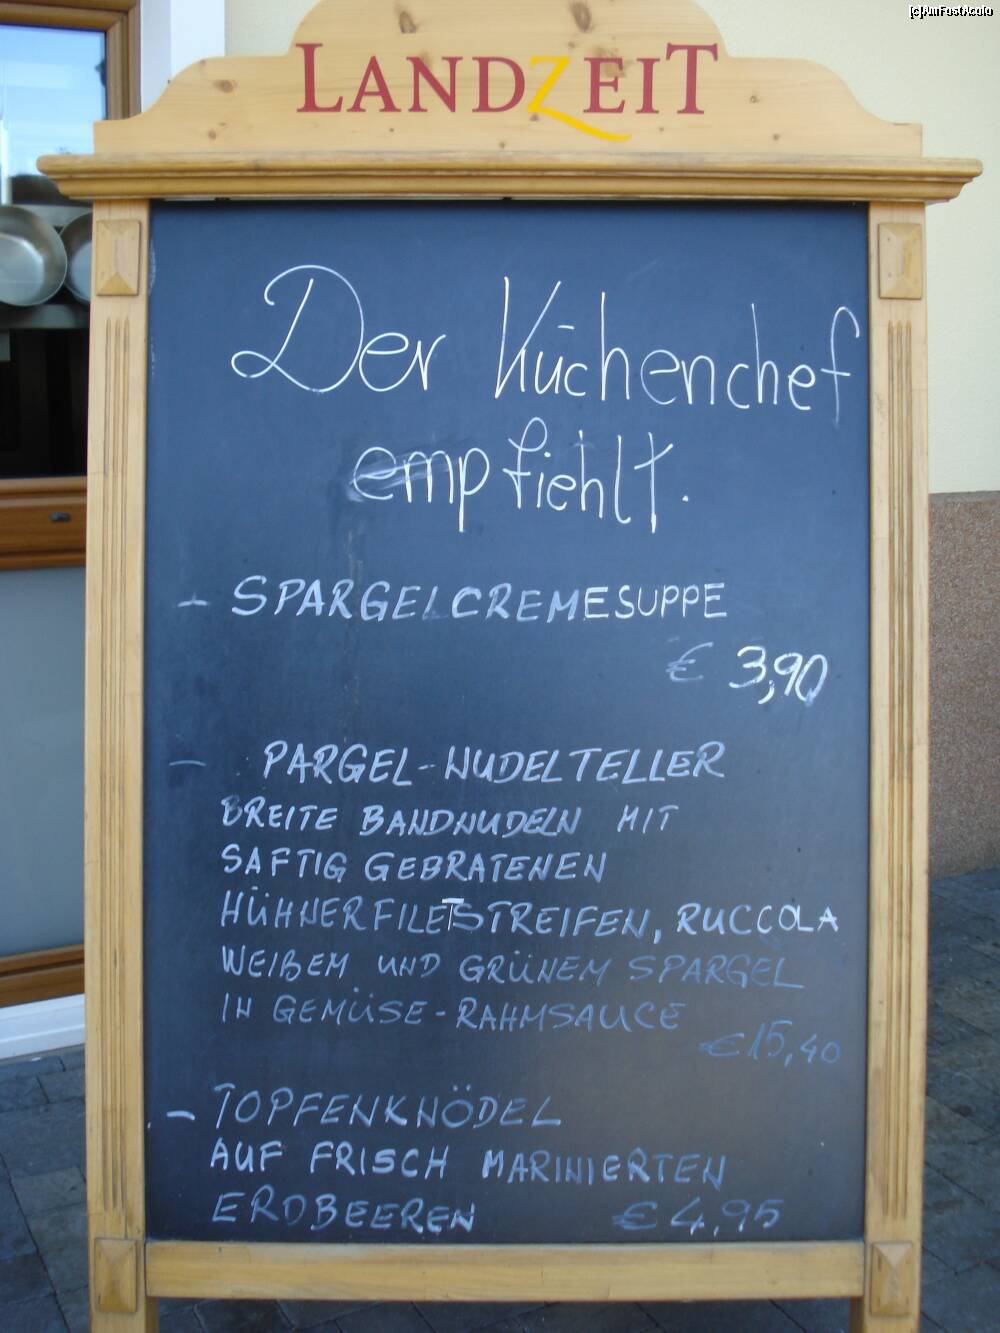 [c]AmFostAcolo
LANDZEIT
Der Küchenchef
empfiehlt.
- SPARGELCREMESUPPE
€ 3,90
- PARGEL-NUDELTELLER
BREITE BANDNUDELN MIT
SAFTIG GEBRATENEN
HÜHNERFILETSTREIFEN, RUCCOLA
WEIßEM UND GRÜNEM SPARGEL
IN GEMÜSE-RAHMSAUCE
€15,40
- TOPFENKNÖDEL
AUF FRISCH MARINIERTEN
ERDBEEREN € 4,95